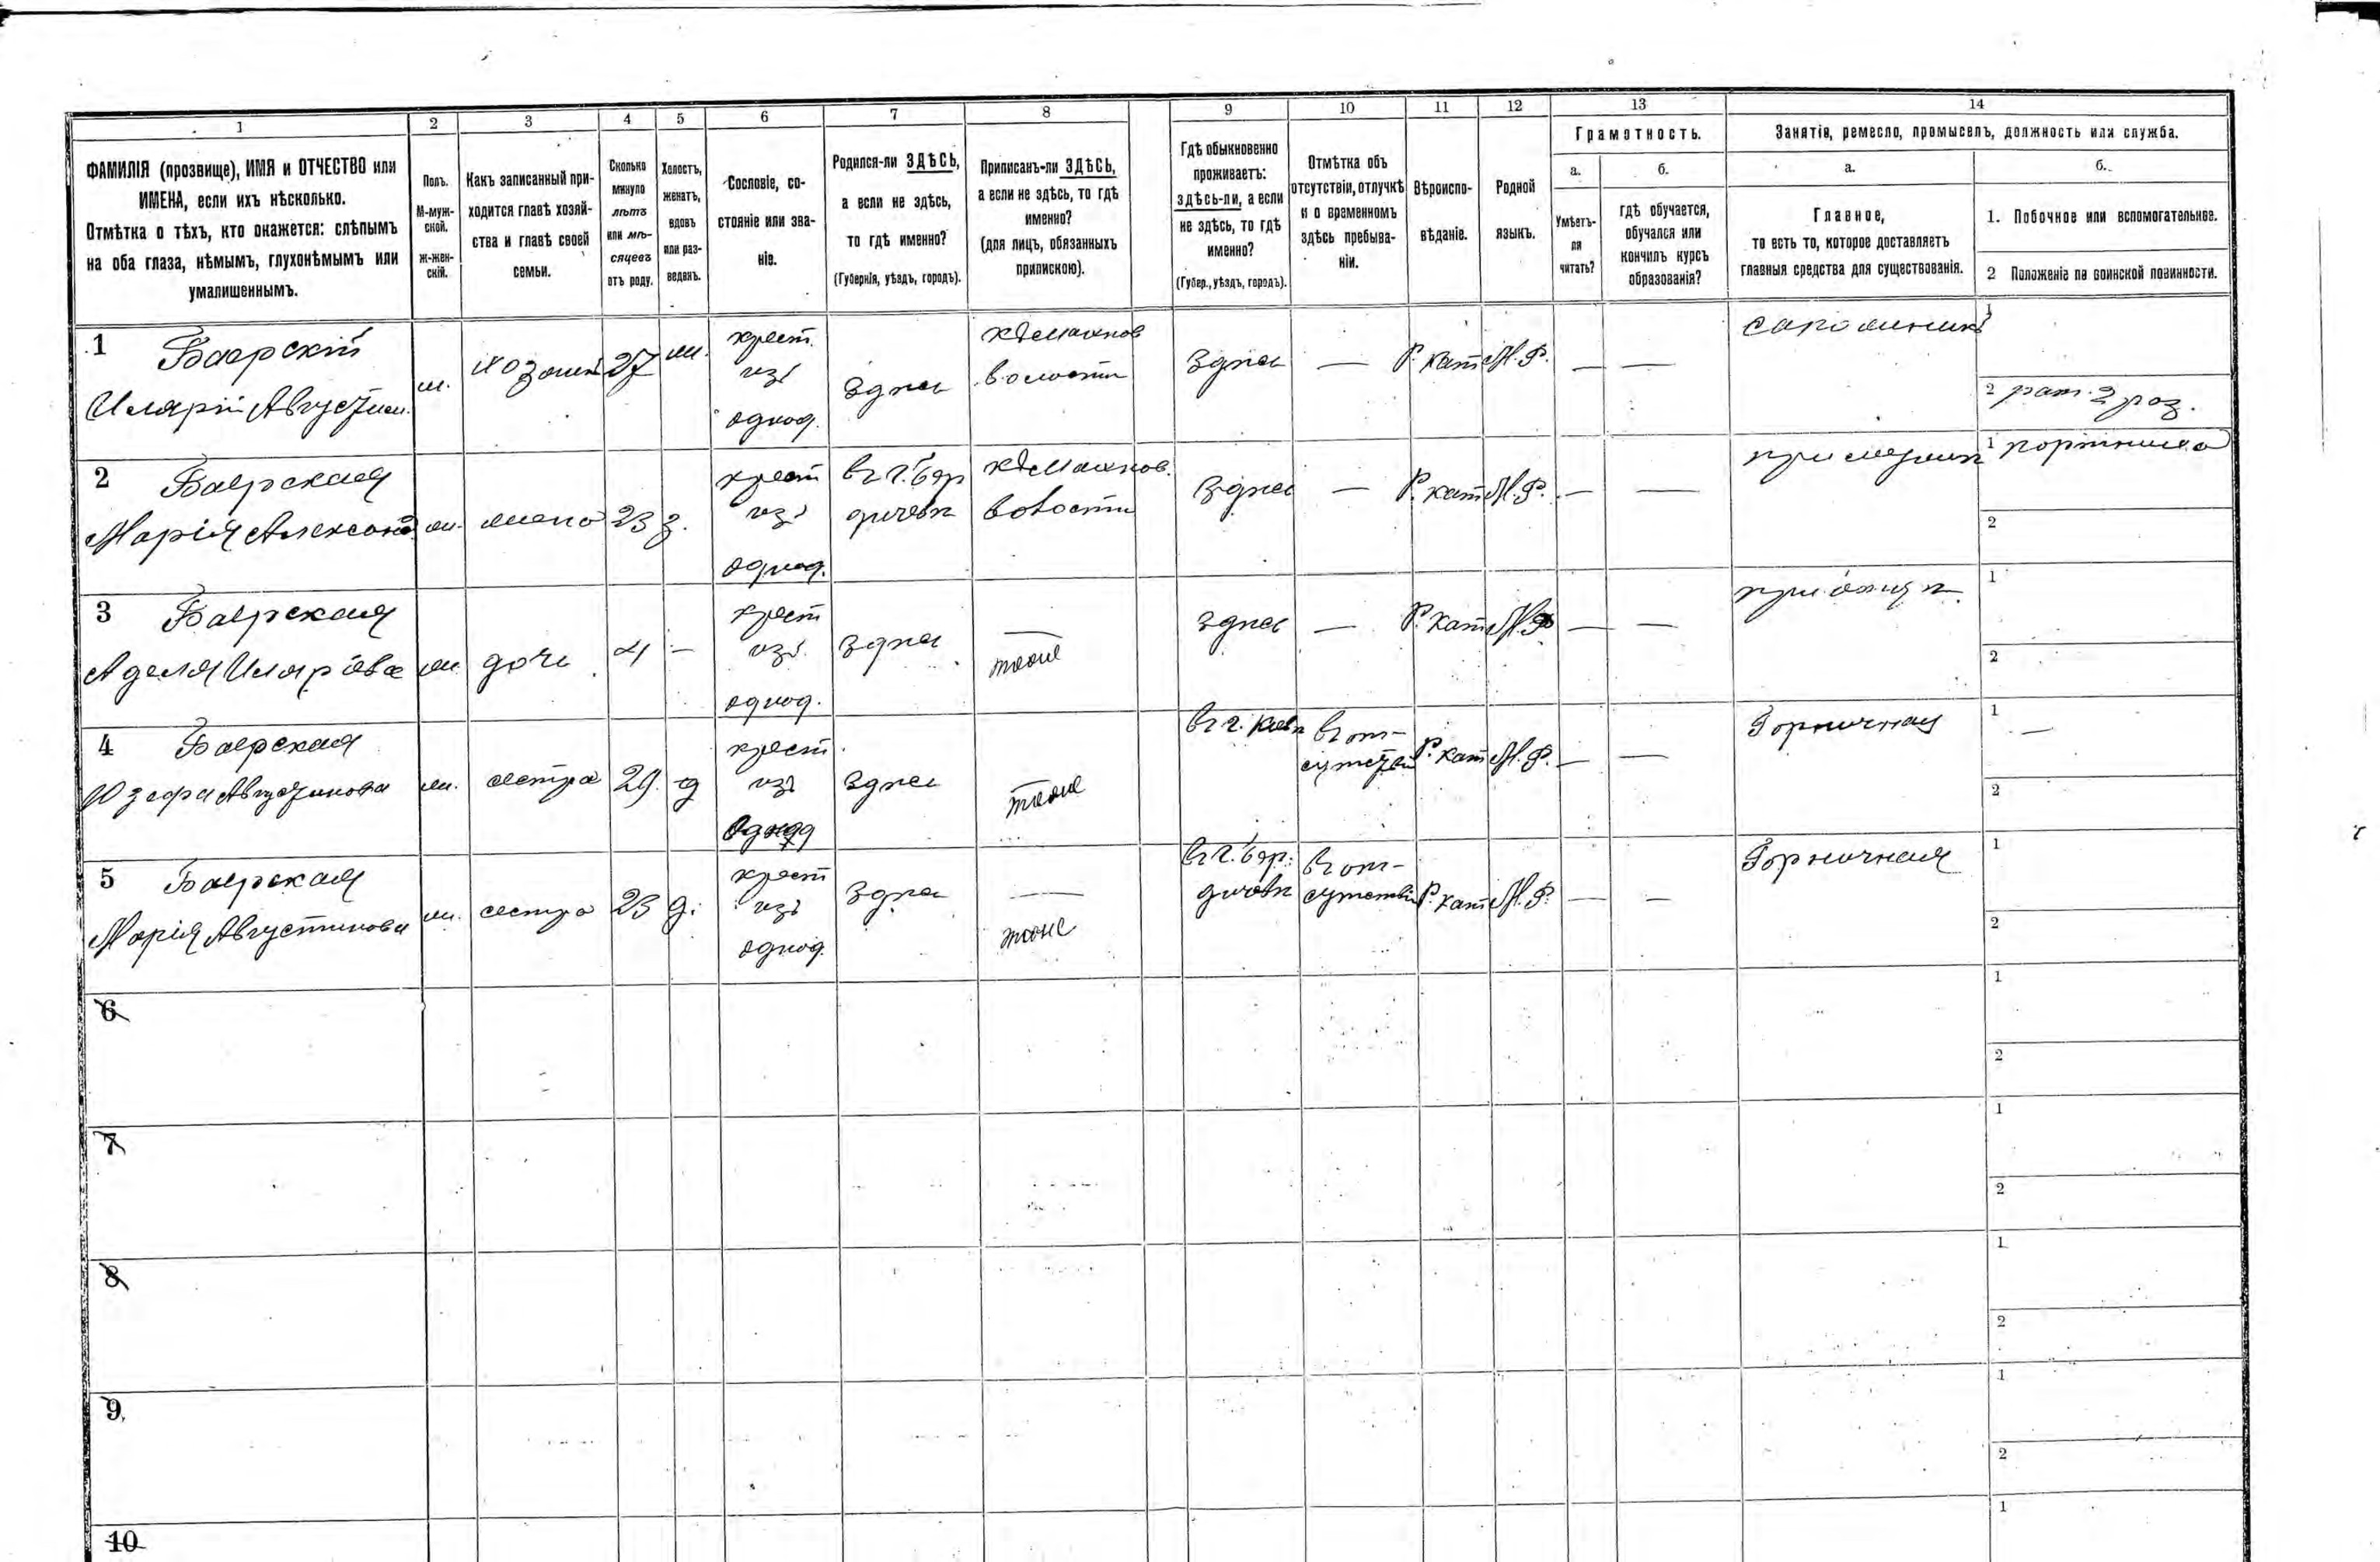 1 2 3 4 5 6 7 8 9 10 11 12 13 14
ФАМИЛІЯ (прозвище), ИМЯ и ОТЧЕСТВО или
ИМЕНА, если ихъ нѣсколько.
Отмѣтка о тѣхъ, кто окажется: слѣпымъ
на оба глаза, нѣмымъ, глухонѣмымъ или
умалишеннымъ.
Полъ.
М-муж-
ской.
ж-жен-
скій.
Какъ записанный при-
ходится главѣ хозяй-
ства и главѣ своей
семьи.
Сколько
минуло
лѣтъ
или мѣ-
сяцевъ
отъ роду.
Холостъ,
женатъ,
вдовъ
или раз-
веденъ.
Сословіе, со-
стояніе или зва-
ніе.
Родился-ли ЗДѢСЬ,
а если не здѣсь,
то гдѣ именно?
(Губернія, уѣздъ, городъ).
Приписанъ-ли ЗДѢСЬ,
а если не здѣсь, то гдѣ
именно?
(для лицъ, обязанныхъ
припискою).
Гдѣ обыкновенно
проживаетъ:
здѣсь-ли, а если
не здѣсь, то гдѣ
именно?
(Губер., уѣздъ, городъ).
Отмѣтка объ
отсутствіи, отлучкѣ
и о временномъ
здѣсь пребыва-
ніи.
Вѣроиспо-
вѣданіе.
Родной
языкъ.
Грамотность.
а.
Умѣетъ-
ли
читать?
б.
гдѣ обучается,
обучался или
кончилъ курсъ
образованія?
Занятія, ремесло, промыселъ, должность или служба.
а.
Главное,
то есть то, которое доставляетъ
главныя средства для существованія.
б.
1. Побочное или вспомогательное.
2 Положеніе по воинской повинности.
1 Баерскій
Иларій Августин.
м.
хозяин
27
ж.
крест.
из
однод.
Здѣсь
волости
Здѣсь
—
Р. Кат
М. Р.
—
—
1
2 рат. 2 раз.
2 Баерская
Марія Александ
ж.
жена
23
з.
крест
из
однод.
въ г. Бер
дичевѣ
волости
Здѣсь
—
Р. Кат
М. Р.
—
—
при мужѣ
1 портниха
2
3 Баерская
Аделя Иларіева
ж.
дочь
4
—
крест
из
однод.
Здѣсь
—
тоже
Здѣсь
—
Р. Кат
М. Р.
—
—
при отцѣ
1
2
4 Баерская
Юзефа Августинова
ж.
сестра
29.
д
крест.
из
однод
Здѣсь
тоже
въ г. Киевѣ
въ от-
сутствіи
Р. Кат
М. Р.
—
—
Горничная
1
—
2
5 Баерская
Марія Августинова
ж.
сестра
23
д.
крест
из
однод.
Здѣсь
—
тоже
въ г. Бер-
дичевѣ
въ от-
сутствіи
Р. Кат
М. Р.
—
—
Горничная
1
2
6
1
2
7
1
2
8
1
2
9
1
2
10
1